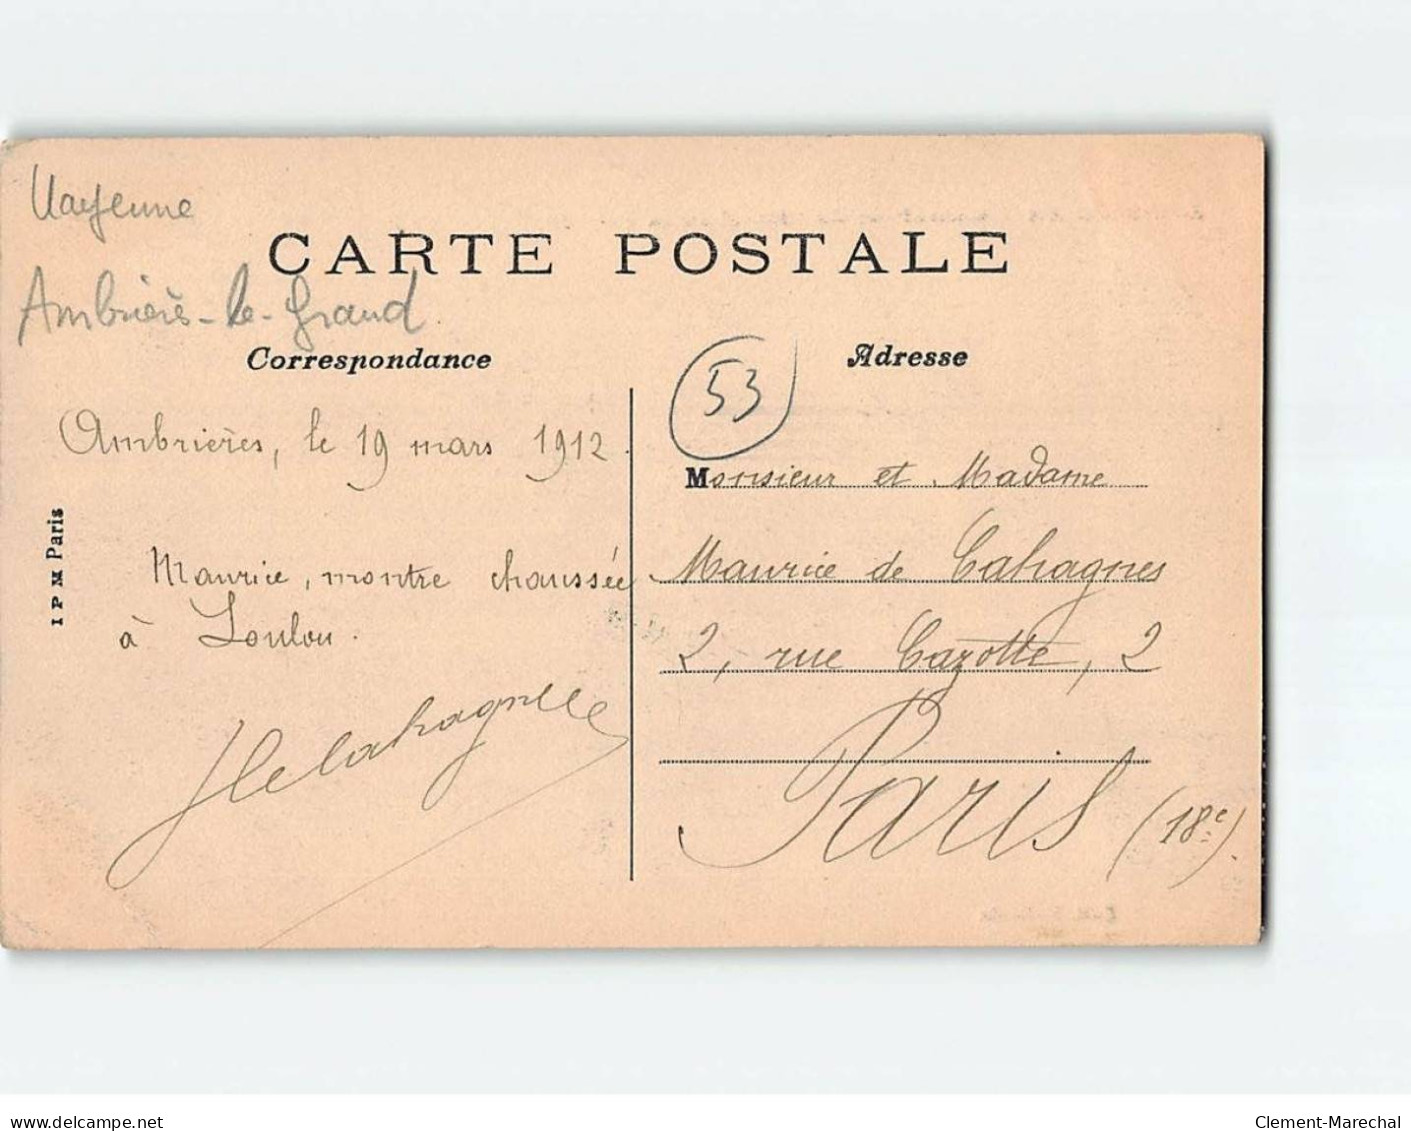 Mayenne
CARTE POSTALE
Ambrières-le-Grand
Correspondance
Adresse
53
Ambrières, le 19 mars 1912.
Monsieur et Madame
Maurice, montre chaussée
Maurice de Cahagnes
à Loulou.
2, rue Cazotte, 2
Paris (18e).
I P M Paris
www.delcampe.net
Clement-Marechal